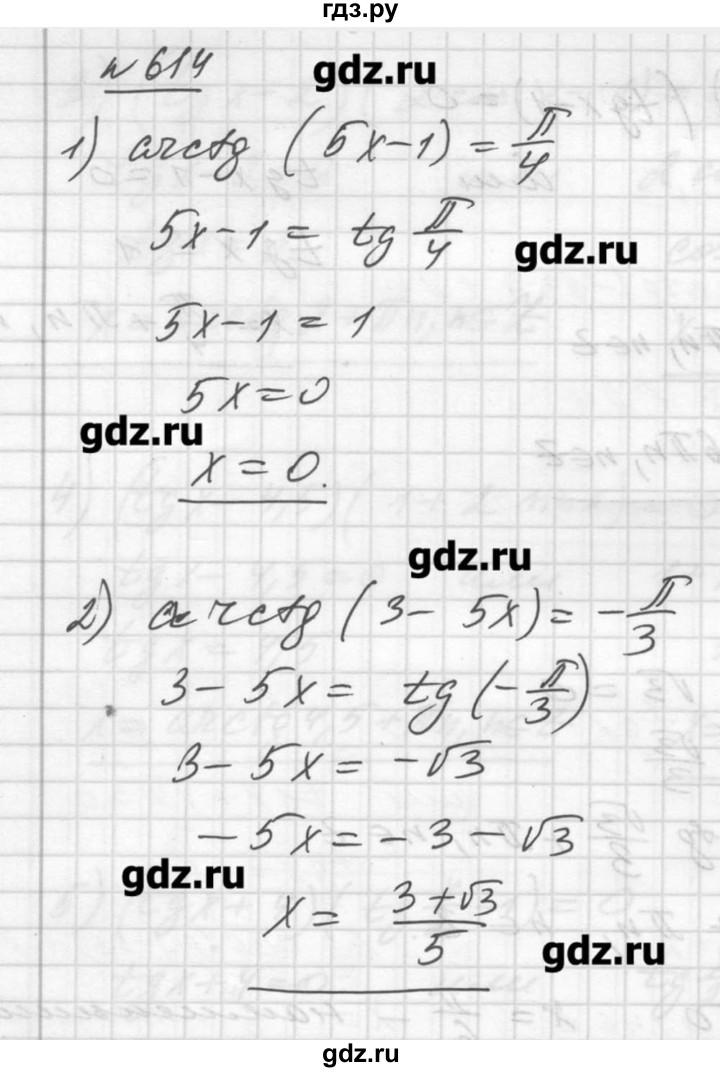 гдз.ру
№614
gdz.ru
1) arctg (5x-1) = π/4
5x-1 = tg π/4
gdz.ru
5x-1 = 1
5x=0
gdz.ru
x = 0.
gdz.ru
2) arctg (3- 5x) = -π/3
3- 5x = tg(-π/3)
3- 5x = -√3
-5x = -3-√3
gdz.ru
x = (3+√3)/5
gdz.ru
gdz.ru